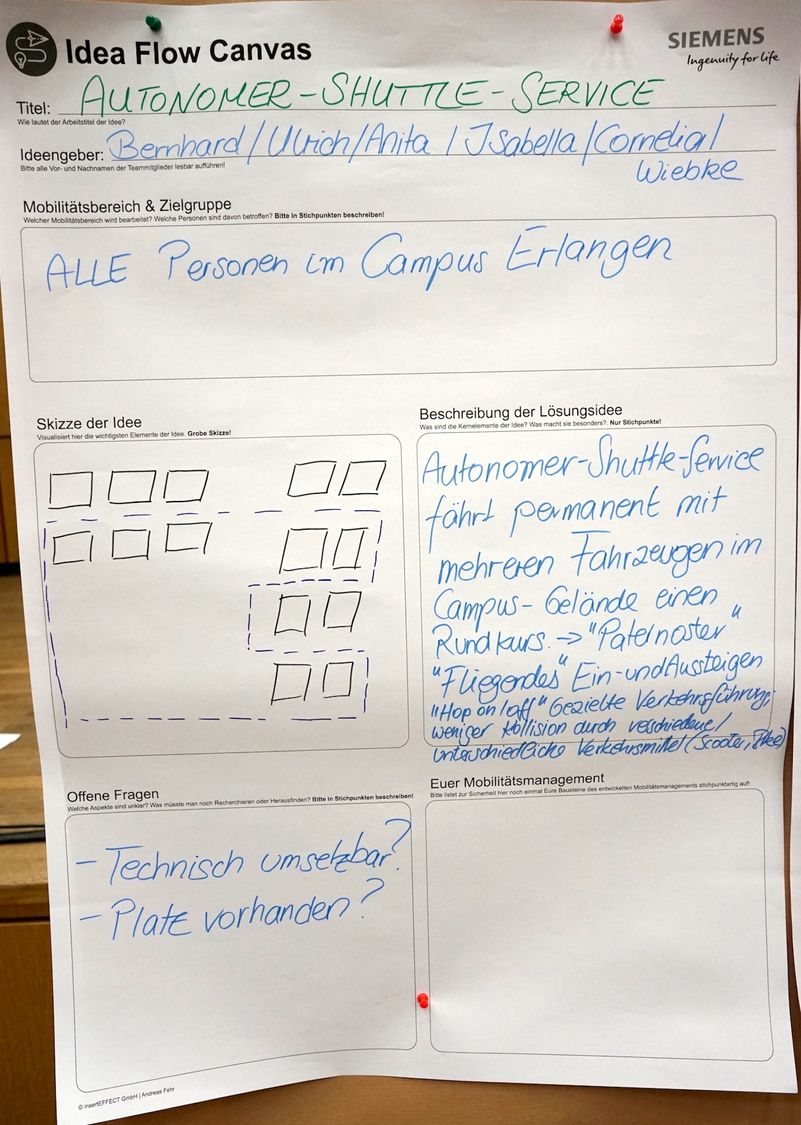 Idea Flow Canvas
SIEMENS
Ingenuity for life
Titel: AUTONOMER-SHUTTLE-SERVICE
Wie lautet der Arbeitstitel der Idee?
Ideengeber: Bernhard/Ulrich/Anita/Isabella/Cornelia/
Wiebke
Bitte alle Vor- und Nachnamen der Teammitglieder lesbar aufführen!
Mobilitätsbereich & Zielgruppe
Welcher Mobilitätsbereich wird bearbeitet? Welche Personen sind davon betroffen? Bitte in Stichpunkten beschreiben!
ALLE Personen im Campus Erlangen
Skizze der Idee
Visualisiert hier die wichtigsten Elemente der Idee. Grobe Skizze!
Beschreibung der Lösungsidee
Was sind die Kernelemente der Idee? Was macht sie besonders? Nur Stichpunkte!
Autonomer-Shuttle-Service
fährt permanent mit
mehreren Fahrzeugen im
Campus-Gelände einen
Rundkurs. → "Paternoster"
"Fliegendes" Ein- und Aussteigen
"Hop on/off" Gezielte Verkehrsführung;
weniger Kollision durch verschiedene/
unterschiedliche Verkehrsmittel (Scooter,
Offene Fragen
Welche Aspekte sind unklar? Was müsste man noch Recherchieren oder Herausfinden? Bitte in Stichpunkten beschreiben!
- Technisch umsetzbar?
- Platz vorhanden?
Euer Mobilitätsmanagement
Bitte listet zur Sicherheit hier noch einmal Eure Bausteine des entwickelten Mobilitätsmanagements stichpunktartig auf!
© insertEFFECT GmbH | Andreas Fehr